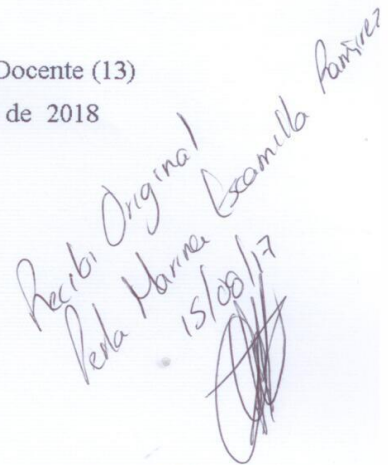 Docente (13)
de 2018
Recibi Original
Perla Marina Escamilla Ramirez
15/08/17